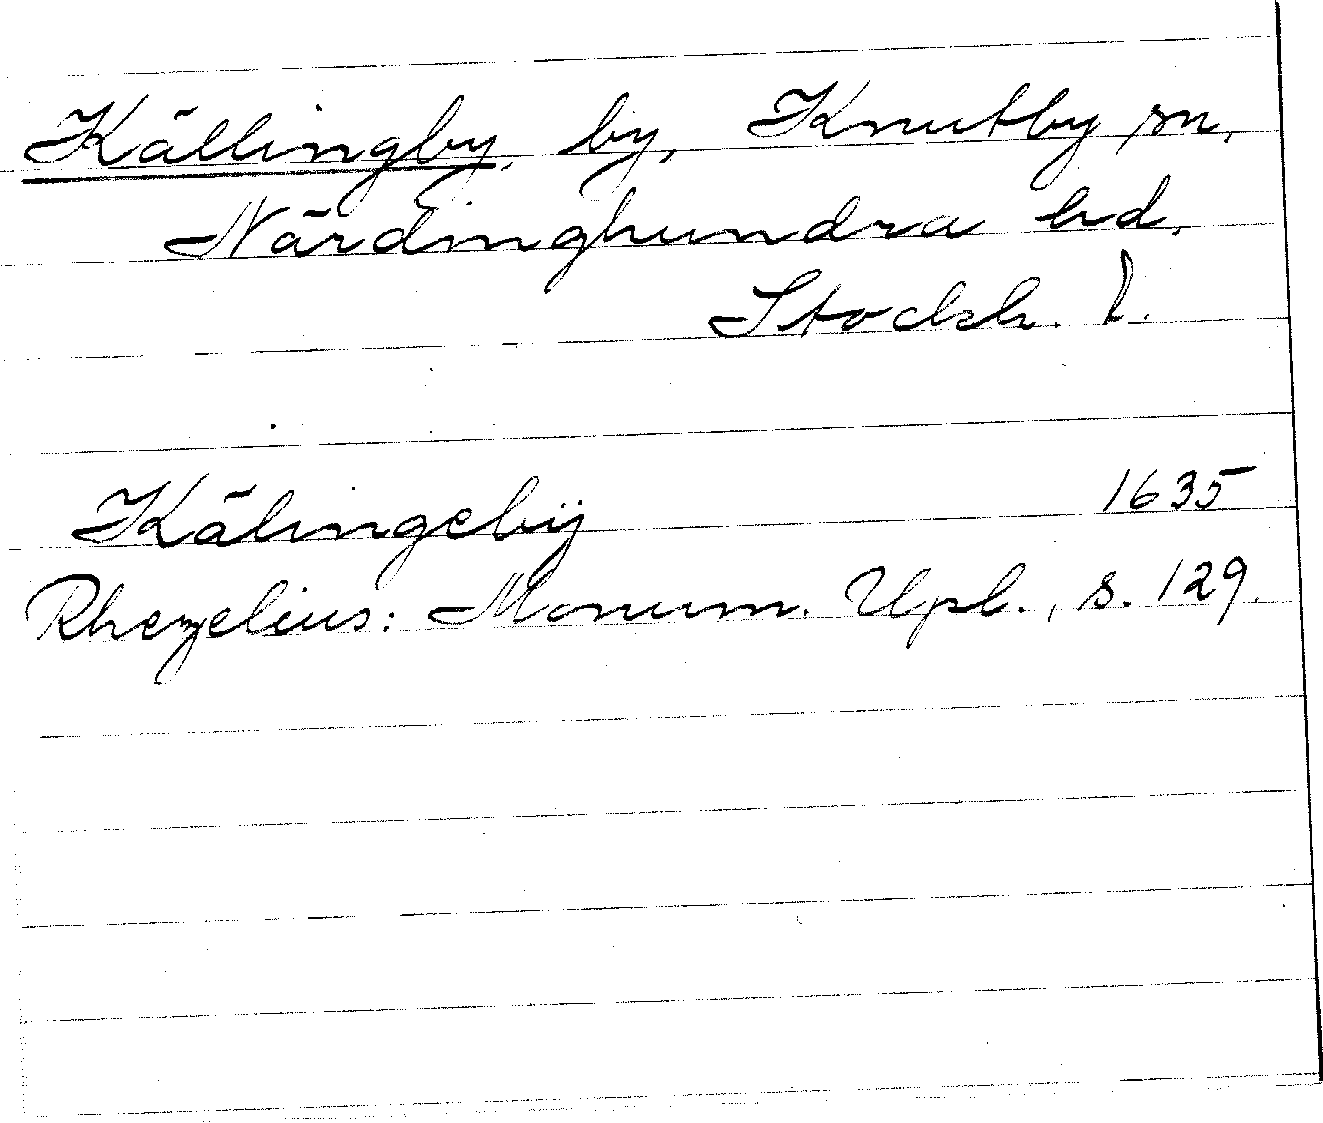 Källingby, by, Knutby sn,
Närdinghundra hd.
Stocksh. l.
Källingebÿ 1635
Rhezelius: Monum. Upl., s. 129.